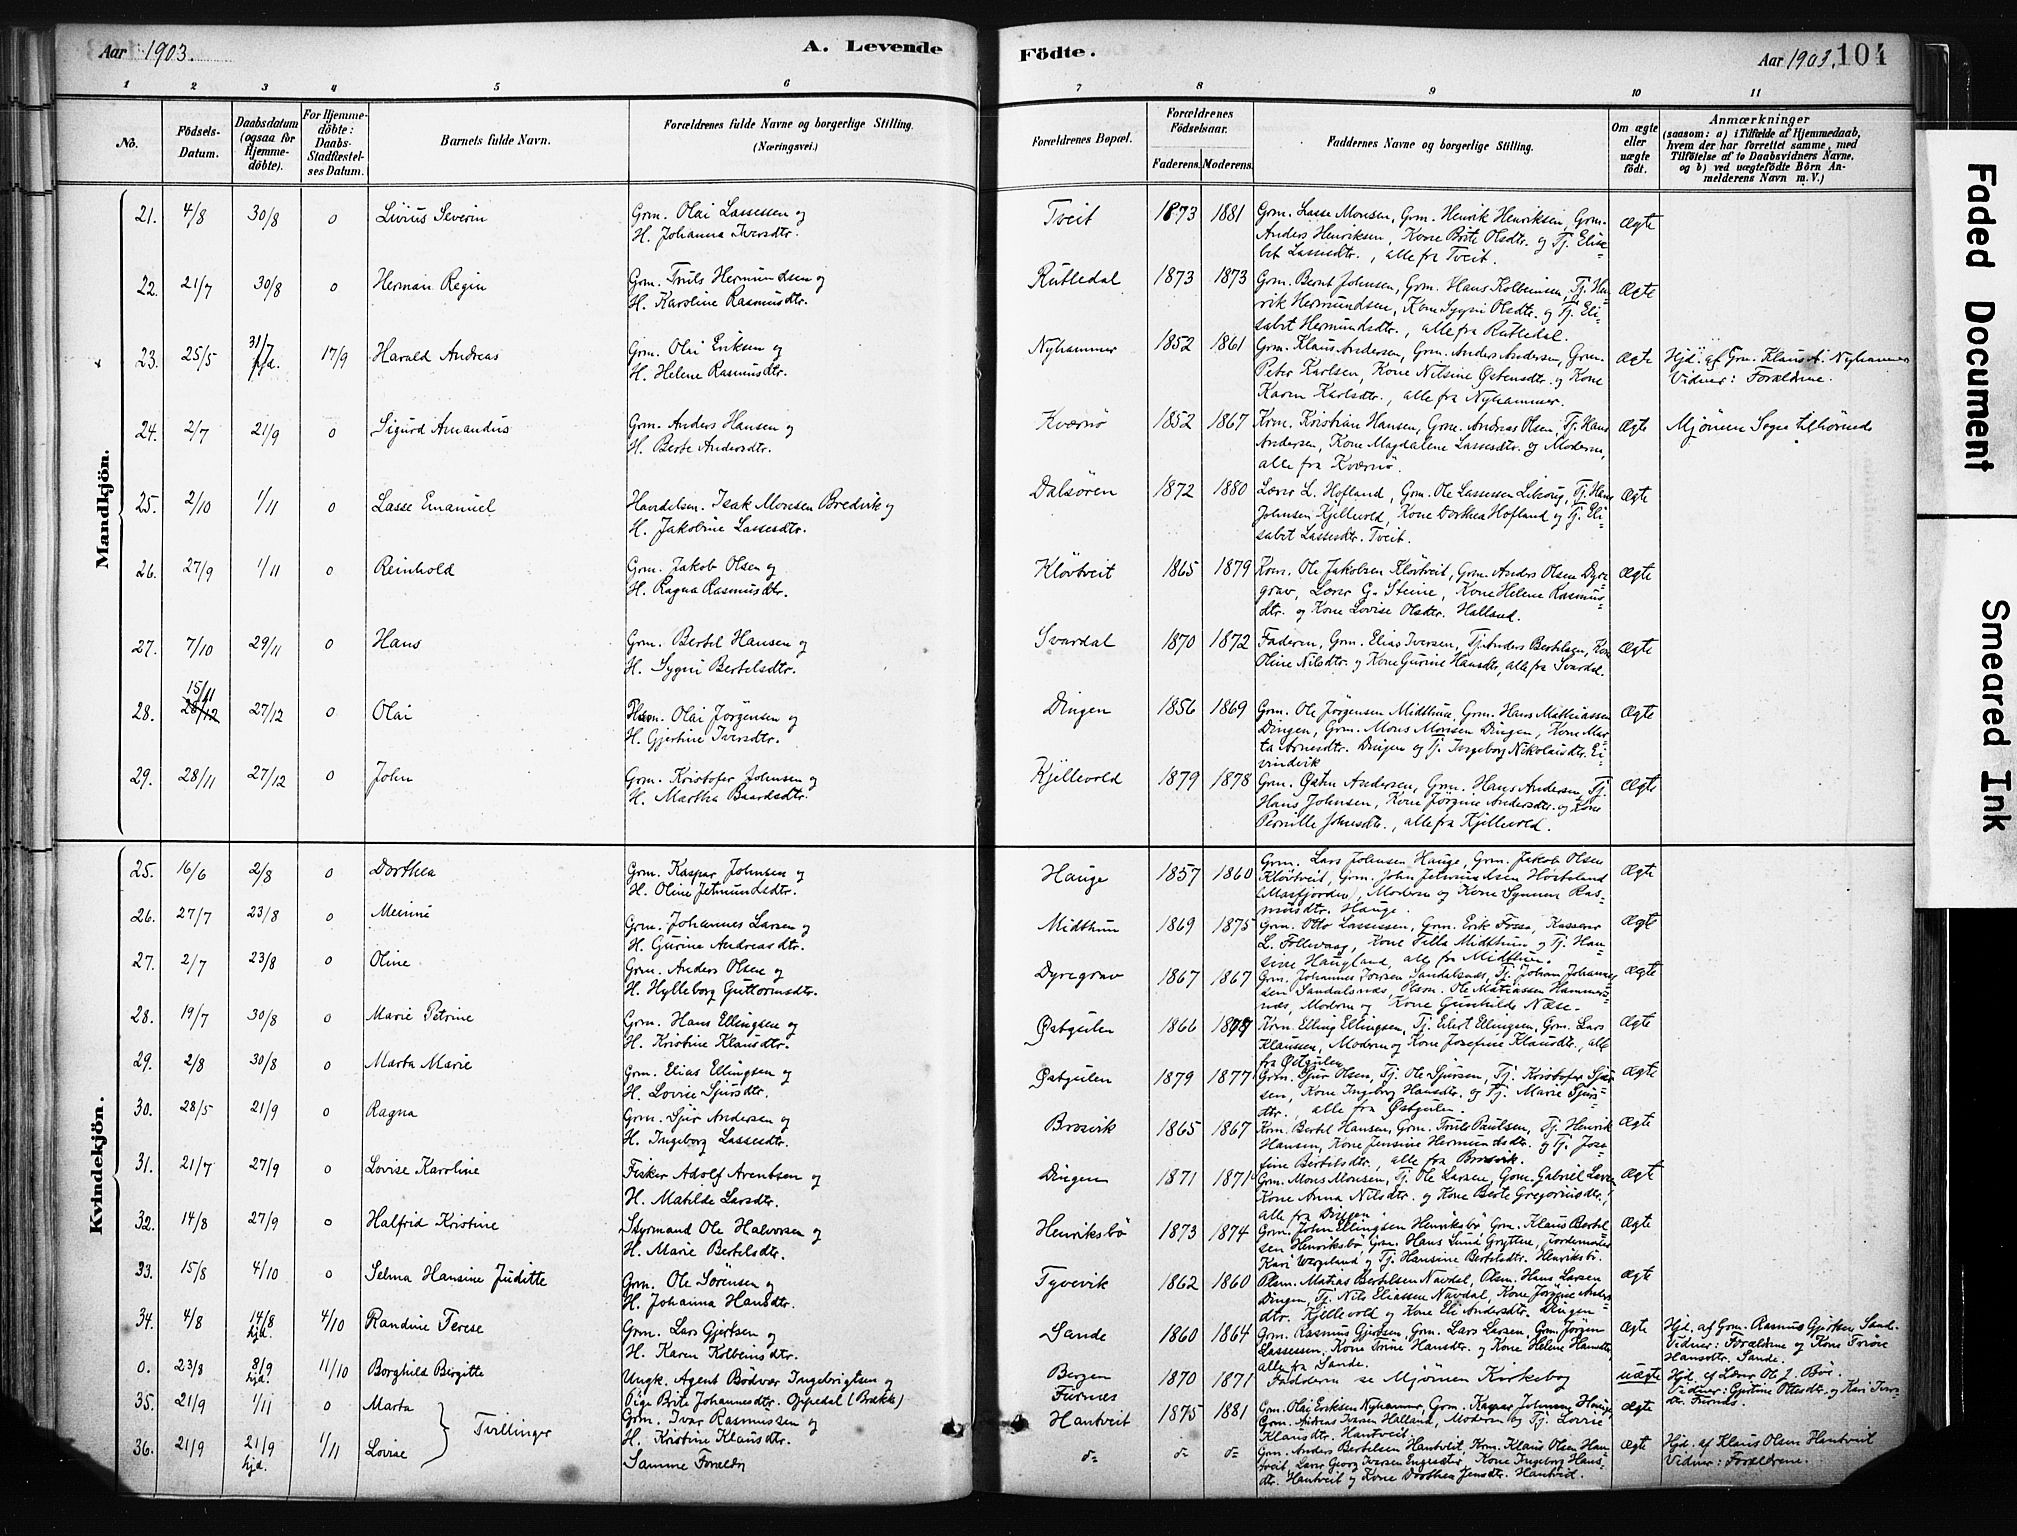 Aar 1903.
A. Levende
Födte.
Aar 1903. 104
1 2 3 4 5 6 7 8 9 10 11
No. Födsels-Datum. Daabsdatum (ogsaa for Hjemmedöbte). For Hjemmedöbte: Daabs-Stadfæstelses Datum. Barnets fulde Navn. Forældrenes fulde Navne og borgerlige Stilling. (Næringsvei.) Forældrenes Bopæl. Forældrenes Födselsaar. Faderens. Moderens. Faddernes Navne og borgerlige Stilling. Om ægte eller uægte födt. Anmærkninger (saasom: a) i Tilfælde af Hjemmedaab, hvem der har forrettet samme, med Tilföielse af to Daabsvidners Navne, og b) ved uægtefödte Börn Anmelderens Navn m. V.)
Mandkjön.
21. 4/8 30/8 0 Livius Severin Grm. Olai Lassessen og
H. Johanna Iversdtr. Tveit 1873 1881 Grm. Lasse Monsen, Grm. Henrik Henriksen, Grm.
Anders Henriksen, Kone Brite Olsdtr. og Tj. Elisa-
bet Lassesdtr., alle fra Tveit. Ægte
22. 21/7 30/8 0 Herman Regin Grm. Truls Hermundsen og
H. Karoline Rasmusdtr. Rutledal 1873 1873 Grm. Bernt Johnsen, Grm. Hans Kolbeinsen, Tj. Hen-
rik Hermundsen, Kone Sygni Olsdtr. og Tj. Eli-
sabet Hermundsdtr., alle fra Rutledal. Ægte
23. 25/5 31/7 hjd. 17/9 Harald Andreas Grm. Olai Eriksen og
H. Helene Rasmusdtr. Nyhammer 1852 1861 Grm. Klaus Andersen, Grm. Anders Andersen, Grm.
Peter Karlsen, Kone Nilsine Østensdtr. og Kone
Karen Karlsdtr., alle fra Nyhammer. Ægte Hjd. af Grm. Klaus A. Nyhammer
Vidner: Forældrene.
24. 2/7 21/9 0 Sigurd Amandus Grm. Anders Hansen og
H. Berte Andersdtr. Kværnø 1852 1867 Krm. Kristian Hansen, Grm. Andreas Olsen, Tj. Hans
Andersen, Kone Magdalene Lassesdtr. og Moderen,
alle fra Kværnø. Ægte Mjömen Sogn tilhörende
25. 2/10 1/11 0 Lasse Emanuel Handelsm. Isak Monsen Bredvik og
H. Jakobine Lassesdtr. Dalsören 1872 1880 Lærer L. Hofland, Grm. Ole Lassessen, Tj. Hans
Johnsen Kjellevold, Kone Dorthea Hofland og Tj. Eli-
sabet Lassesdtr. Tveit. Ægte
26. 27/9 1/11 0 Reinhold Grm. Jakob Olsen og
H. Ragna Rasmusdtr. Klövtveit 1865 1879 Krm. Ole Jakobsen Klövtveit, Grm. Anders Olsen Dyre-
grav, Lærer G. Steine, Kone Helene Rasmus-
dtr. og Kone Lovise Olsdtr. Halland. Ægte
27. 7/10 29/11 0 Hans Grm. Bertel Hansen og
H. Sygni Bertelsdtr. Svardal 1870 1872 Faderen, Grm. Elias Iversen, Tj. Anders Bertelsen, Kone
Oline Nilsdtr. og Kone Gurine Hansdtr., alle fra Svardal. Ægte
28. 15/11 28/12 27/12 0 Olai Plsm. Olai Jörgensen og
H. Gjertine Iversdtr. Dingen 1856 1869 Grm. Ole Jörgensen Midthun, Grm. Hans Mathiassen
Dingen, Grm. Mons Monsen Dingen, Kone Mar-
ta Arnesdtr. Dingen og Tj. Ingeborg Nikolaisdtr. Ei-
vindvik Ægte
29. 28/11 27/12 0 John Grm. Kristofer Johnsen og
H. Martha Baardsdtr. Kjellevold 1879 1878 Grm. Østen Andersen, Grm. Hans Andersen, Tj.
Hans Johnsen, Kone Jørgine Andersdtr. og Kone
Pernille Johnsdtr., alle fra Kjellevold. Ægte
Kvindekjön.
25. 16/6 2/8 0 Dorthea Grm. Kaspar Johnsen og
H. Oline Jetmundsdtr. Hauge 1857 1860 Grm. Lars Johnsen Hauge, Grm. Jakob Olsen
Klövtveit, Grm. John Jetmundsen Hosteland
(Masfjorden), Moderen og Kone Synneve Ras-
musdtr. Hauge. Ægte
26. 27/7 23/8 0 Meimi Grm. Johannes Larsen og
H. Gurine Andreasdtr. Midthun 1869 1875 Grm. Otto Lassessen, Grm. Erik Fosse, Kasserer
L. Follevaag, Kone Tilla Midthun og Tj. Han-
sine Haugland, alle fra Midthun. Ægte
27. 2/7 23/8 0 Oline Grm. Anders Olsen og
H. Hylleborg Guttormsdtr. Dyregrav 1867 1867 Grm. Johannes Iversen Sandalsnæs, Tj. Johan Johannes-
sen Sandalsnæs, Plsm. Ole Matiassen Hammers-
næs, Moderen og Kone Gunhilde Næse. Ægte
28. 19/7 30/8 0 Marie Petrine Grm. Hans Ellingsen og
H. Kristine Klausdtr. Østgulen 1866 Krm. Elling Ellingsen, Tj. Eilert Ellingsen, Grm. Lars
Klaussen, Moderen og Kone Josefine Klausdtr., alle
fra Østgulen. Ægte
29. 2/8 30/8 0 Marta Marie Grm. Elias Ellingsen og
H. Lovise Sjursdtr. Østgulen 1879 1877 Grm. Sjur Olsen, Tj. Ole Sjursen, Tj. Kristofer Sjur-
sen, Kone Ingeborg Hansdtr. og Tj. Marie Sjurs-
dtr., alle fra Østgulen. Ægte
30. 28/5 21/9 0 Ragna Grm. Sjur Andersen og
H. Ingeborg Lassesdtr. Brosvik 1865 1867 Krm. Bertel Hansen, Grm. Truls Paulsen, Tj. Henrik
Hansen, Kone Jensine Hermundsdtr. og Tj. Jose-
fine Bertelsdtr., alle fra Brosvik. Ægte
31. 21/7 27/9 0 Lovise Karoline Fisker Adolf Arentsen og
H. Matilde Larsdtr. Dingen 1871 1871 Grm. Mons Monsen, Tj. Ole Larsen, Grm. Gabriel Larsen
Kone Anna Nilsdtr. og Kone Berte Gregoriusdtr.,
alle fra Dingen. Ægte
32. 14/8 27/9 0 Halfrid Kristine Styrmand Ole Halvorsen og
H. Marie Bertelsdtr. Henriksbö 1873 1874 Grm. John Ellingsen Henriksbö, Grm. Klaus Bertel-
sen Henriksbö, Grm. Hans Lund Grytten, Jordemoder
Kari Wergeland og Tj. Hansine Bertelsdtr. Henriksbö. Ægte
33. 15/8 4/10 0 Selma Hansine Juditte Grm. Ole Sörensen og
H. Johanna Hansdtr. Tyvevik 1862 1860 Plsm. Matias Bertelsen Navdal, Plsm. Hans Larsen
Dingen, Tj. Nils Eliassen Navdal, Kone Jörgine Anders-
dtr. Kjellevold og Kone Eli Andersdtr. Dingen. Ægte
34. 4/8 14/8 hjd. 4/10 Randine Terese Grm. Lars Gjertsen og
H. Karen Kolbeinsdtr. Sande 1860 1864 Grm. Rasmus Gjertsen, Grm. Lars Larsen, Grm. Jörgen
Lassessen, Kone Trine Hansdtr. og Kone Helene Hansdtr.
alle fra Sande. Ægte Hjd. af Grm. Rasmus Gjertsen Sande.
Vidner: Forældrene og Kone
Hansdtr. Sande.
0. 23/8 8/9 hjd. 11/10 Borghild Birgitte Ungk. Agent Bödvar Ingebrigtsen og
Pige Brite Johannesdtr. Opedal (Brække) Bergen
Furnes 1870 1871 Fadderne se Mjömen Kirkebog uægte Hjd. af Lærer O. J. Böe.
Vidner: Gjertine Ottesdtr. og Kari Ivers-
dtr. Furnes.
35. 21/9 1/11 0 Marta Grm. Ivar Rasmussen og
H. Kristine Klausdtr. Hantveit 1875 1881 Grm. Olai Eriksen Nyhammer, Grm. Kaspar Johnsen Hauge,
Grm. Andreas Iversen Halland, Moderen og Tj. Lovise
Klausdtr. Hantveit. Ægte
Tvillinger
36. 21/9 21/9 hjd. 1/11 Lovise Samme Forældre Grm. Anders Bertelsen Hantveit, Krm. Klaus Olsen Han-
tveit, Lærer Georg Iversen Engesæter, Kone Ingeborg Hans-
dtr. Hantveit og Kone Dorthea Jensdtr. Hantveit. Ægte Hjd. af Klaus Olsen Hantveit
Vidner: Forældrene.
Faded Document
Smeared Ink